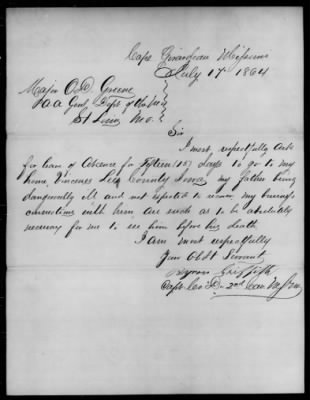 Cape Girardeau Missouri
July 17th 1864
Major O D Greene
A a Genl Dept of the Mo
St Louis Mo.
Sir
I most respectfully ask
for leave of absence for Fifteen (15) days to go to my
home, Vincenes Lee County Iowa, my father being
dangerously ill and not expected to recover my business
connections with him, are such as to be absolutely
necessary for me to see him before his death
I am most respectfully
Your Obdt Servant
Byron Griffith
Capt. Co "D" 2nd Cav M.S.M.